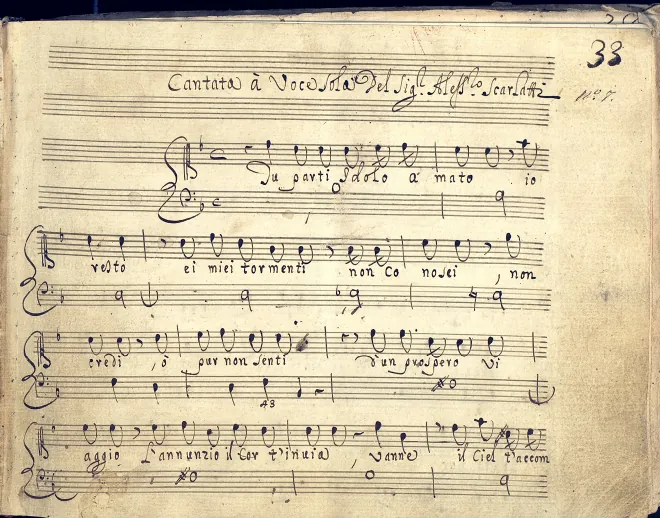 33
Cantata à Voce Sola Del Sig.r Aless.ro Scarlatti
No. 7.
Tu parti Idolo a mato io
resto ei miei tormenti non Co nosci, non
credi, ò pur non senti d'un prospero vi
43
aggio L'annunzio il Cor t'invia, vanne il Ciel t'accom